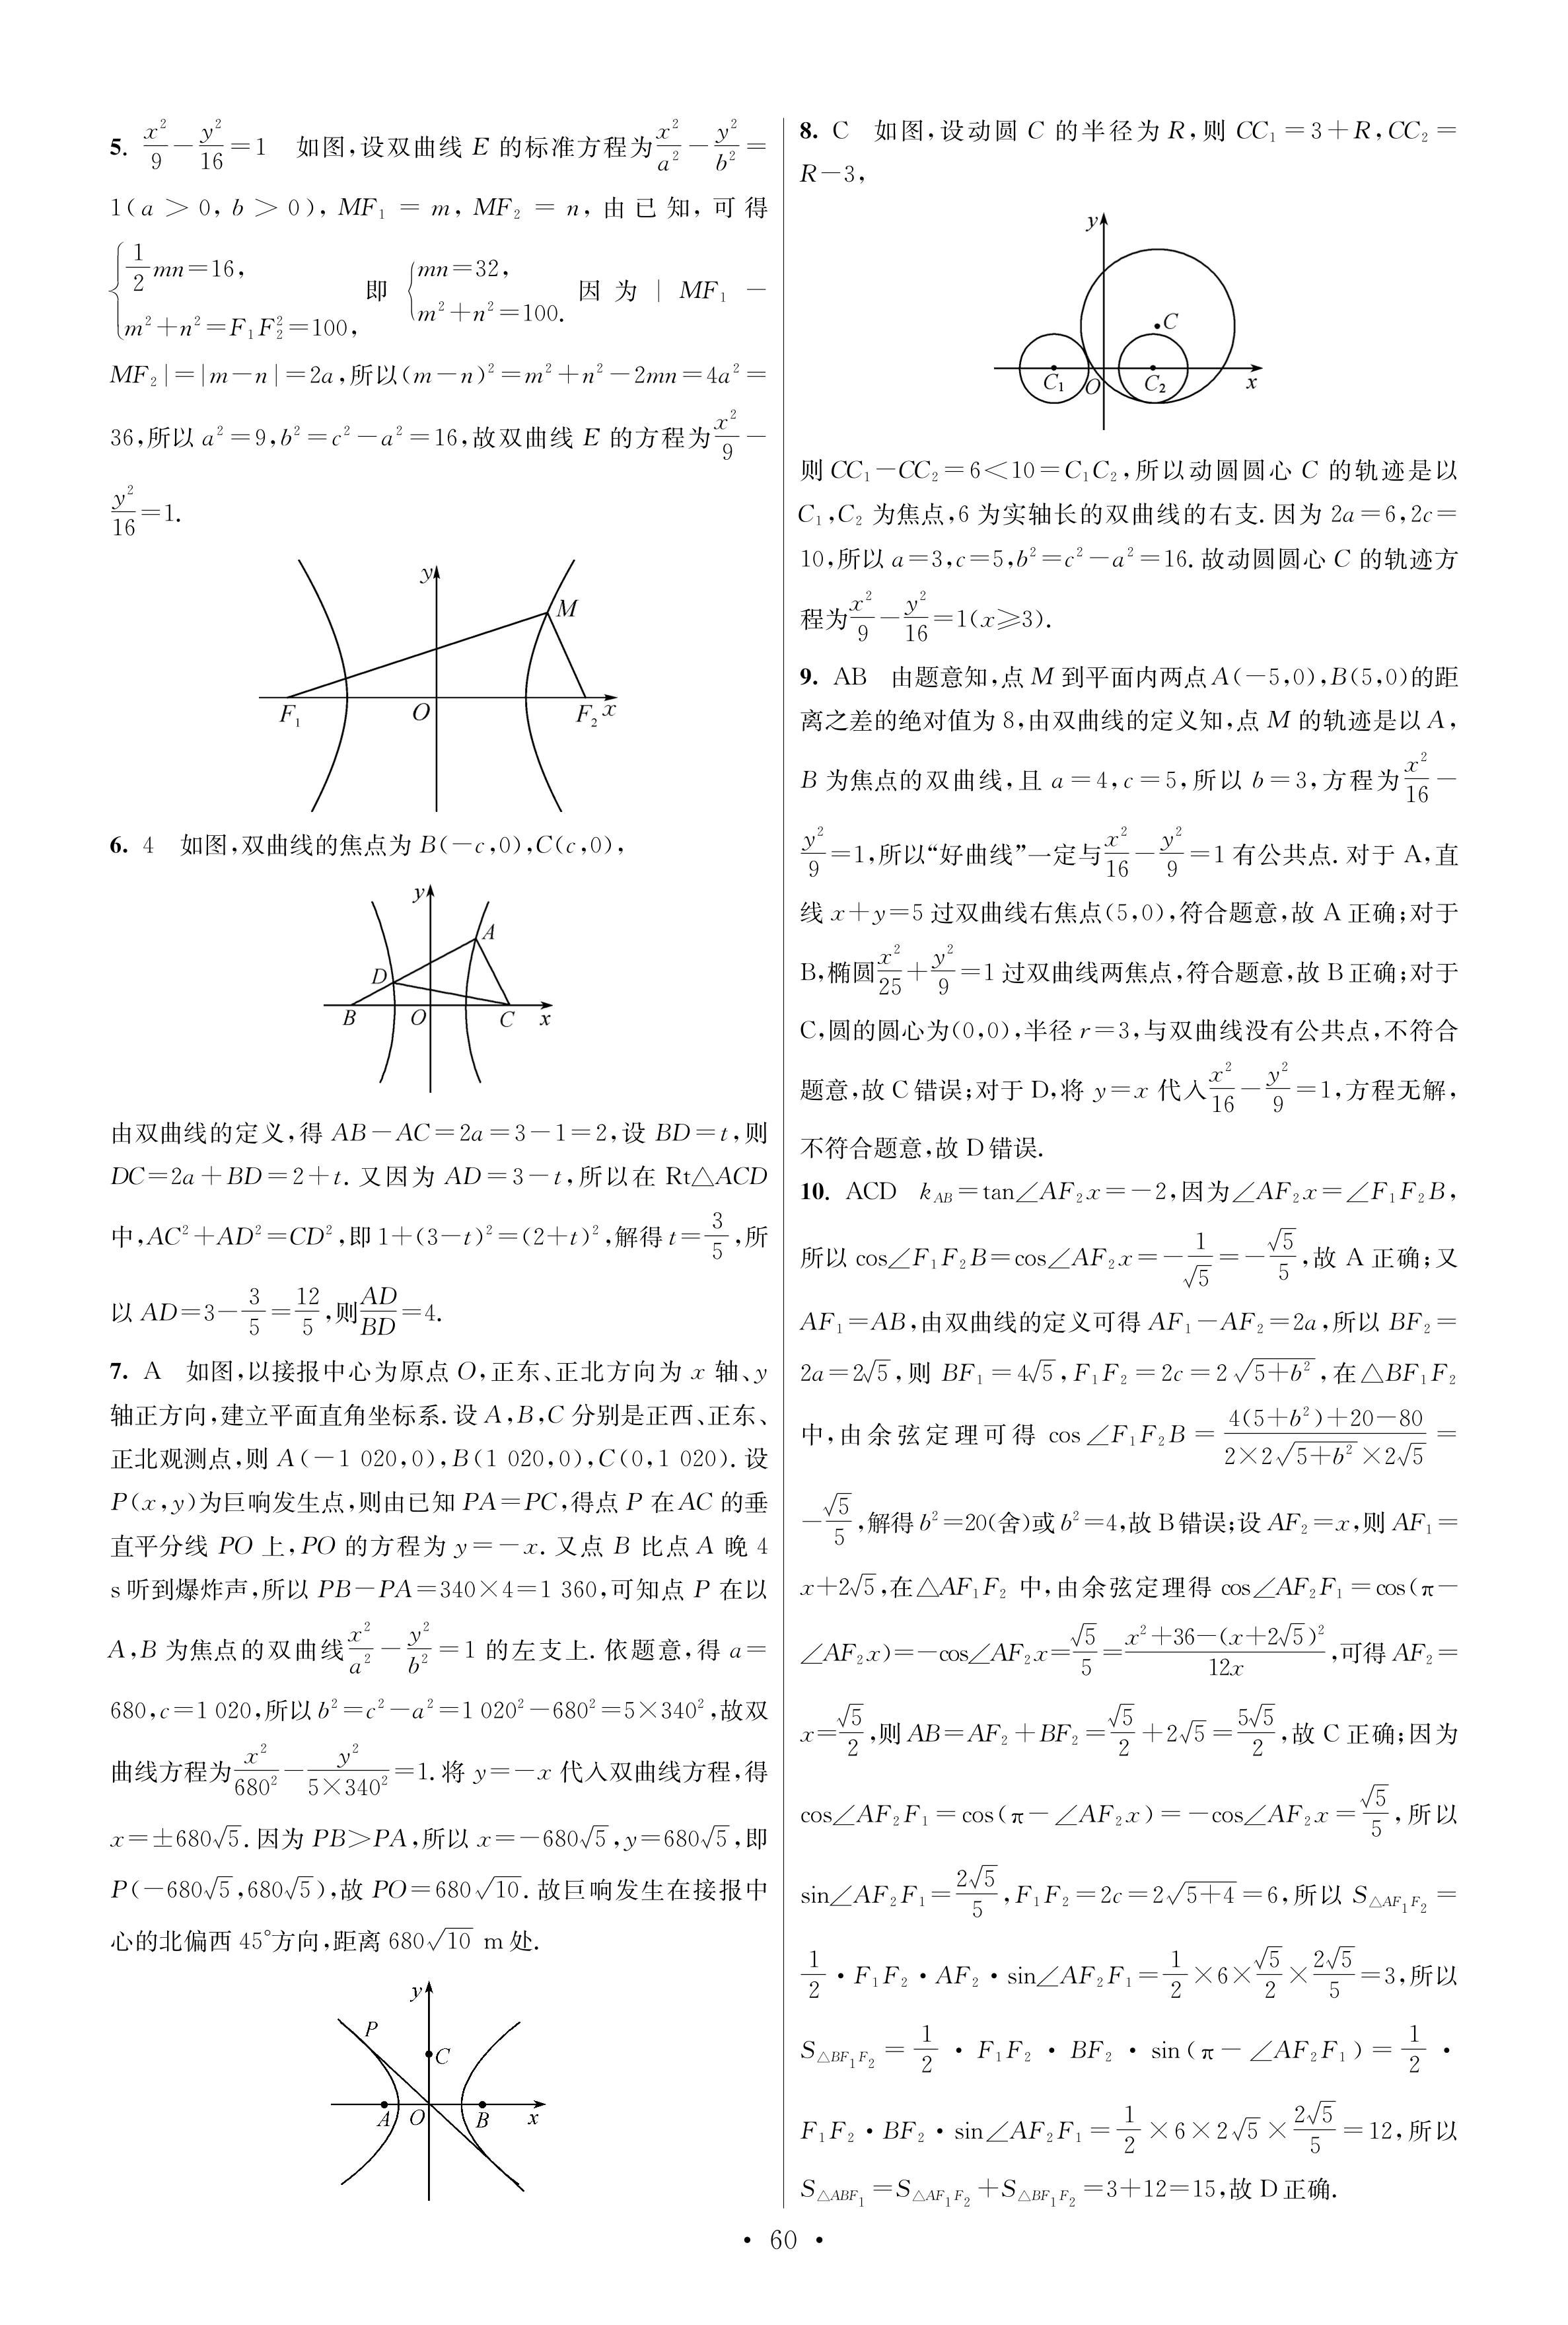 5. $\frac{x^2}{9}-\frac{y^2}{16}=1$ 如图,设双曲线 E 的标准方程为$\frac{x^2}{a^2}-\frac{y^2}{b^2}=$
$1(a>0,b>0)$, $MF_1=m$, $MF_2=n$, 由已知, 可得
$\begin{cases}\frac{1}{2}mn=16,\\m^2+n^2=F_1F_2^2=100,\end{cases}$ 即 $\begin{cases}mn=32,\\m^2+n^2=100.\end{cases}$ 因为 $|MF_1-$
$MF_2|=|m-n|=2a$,所以$(m-n)^2=m^2+n^2-2mn=4a^2=$
36,所以 $a^2=9,b^2=c^2-a^2=16$,故双曲线 E 的方程为$\frac{x^2}{9}-$
$\frac{y^2}{16}=1$.
y
M
F₁ O F₂ x
6. 4 如图,双曲线的焦点为 B(−c,0),C(c,0),
y
A
D
B O C x
由双曲线的定义,得 AB−AC=2a=3−1=2,设 BD=t,则
DC=2a+BD=2+t. 又因为 AD=3−t,所以在 Rt△ACD
中,$AC^2+AD^2=CD^2$,即 $1+(3-t)^2=(2+t)^2$,解得 $t=\frac{3}{5}$,所
以 $AD=3-\frac{3}{5}=\frac{12}{5}$,则$\frac{AD}{BD}=4$.
7. A 如图,以接报中心为原点 O,正东、正北方向为 x 轴、y
轴正方向,建立平面直角坐标系. 设 A,B,C 分别是正西、正东、
正北观测点,则 A(−1 020,0),B(1 020,0),C(0,1 020). 设
P(x,y)为巨响发生点,则由已知 PA=PC,得点 P 在 AC 的垂
直平分线 PO 上,PO 的方程为 y=−x. 又点 B 比点 A 晚 4
s 听到爆炸声,所以 PB−PA=340×4=1 360,可知点 P 在以
A,B 为焦点的双曲线$\frac{x^2}{a^2}-\frac{y^2}{b^2}=1$ 的左支上. 依题意,得 a=
680,c=1 020,所以 $b^2=c^2-a^2=1\,020^2-680^2=5×340^2$,故双
曲线方程为$\frac{x^2}{680^2}-\frac{y^2}{5×340^2}=1$. 将 y=−x 代入双曲线方程,得
$x=±680\sqrt{5}$. 因为 PB>PA,所以 $x=-680\sqrt{5},y=680\sqrt{5}$,即
$P(-680\sqrt{5},680\sqrt{5})$,故 $PO=680\sqrt{10}$. 故巨响发生在接报中
心的北偏西 45°方向,距离 $680\sqrt{10}$ m 处.
y
P
C
A O B x
8. C 如图,设动圆 C 的半径为 R,则 $CC_1=3+R,CC_2=$
R−3,
y
C
C₁ O C₂ x
则 $CC_1-CC_2=6<10=C_1C_2$,所以动圆圆心 C 的轨迹是以
$C_1,C_2$ 为焦点,6 为实轴长的双曲线的右支. 因为 2a=6,2c=
10,所以 $a=3,c=5,b^2=c^2-a^2=16$. 故动圆圆心 C 的轨迹方
程为$\frac{x^2}{9}-\frac{y^2}{16}=1(x≥3)$.
9. AB 由题意知,点 M 到平面内两点 A(−5,0),B(5,0)的距
离之差的绝对值为 8,由双曲线的定义知,点 M 的轨迹是以 A,
B 为焦点的双曲线,且 a=4,c=5,所以 b=3,方程为$\frac{x^2}{16}-$
$\frac{y^2}{9}=1$,所以“好曲线”一定与$\frac{x^2}{16}-\frac{y^2}{9}=1$ 有公共点. 对于 A,直
线 x+y=5 过双曲线右焦点(5,0),符合题意,故 A 正确;对于
B,椭圆$\frac{x^2}{25}+\frac{y^2}{9}=1$ 过双曲线两焦点,符合题意,故 B 正确;对于
C,圆的圆心为(0,0),半径 r=3,与双曲线没有公共点,不符合
题意,故 C 错误;对于 D,将 y=x 代入$\frac{x^2}{16}-\frac{y^2}{9}=1$,方程无解,
不符合题意,故 D 错误.
10. ACD $k_{AB}=\tan∠AF_2x=-2$,因为$∠AF_2x=∠F_1F_2B$,
所以 $\cos∠F_1F_2B=\cos∠AF_2x=-\frac{1}{\sqrt{5}}=-\frac{\sqrt{5}}{5}$,故 A 正确;又
$AF_1=AB$,由双曲线的定义可得 $AF_1-AF_2=2a$,所以 $BF_2=$
$2a=2\sqrt{5}$,则 $BF_1=4\sqrt{5},F_1F_2=2c=2\sqrt{5+b^2}$,在$△BF_1F_2$
中,由余弦定理可得 $\cos∠F_1F_2B=\frac{4(5+b^2)+20-80}{2×2\sqrt{5+b^2}×2\sqrt{5}}=$
$-\frac{\sqrt{5}}{5}$,解得 $b^2=20$(舍)或 $b^2=4$,故 B 错误;设 $AF_2=x$,则 $AF_1=$
$x+2\sqrt{5}$,在$△AF_1F_2$ 中,由余弦定理得 $\cos∠AF_2F_1=\cos(π-$
$∠AF_2x)=-\cos∠AF_2x=\frac{\sqrt{5}}{5}=\frac{x^2+36-(x+2\sqrt{5})^2}{12x}$,可得 $AF_2=$
$x=\frac{\sqrt{5}}{2}$,则 $AB=AF_2+BF_2=\frac{\sqrt{5}}{2}+2\sqrt{5}=\frac{5\sqrt{5}}{2}$,故 C 正确;因为
$\cos∠AF_2F_1=\cos(π-∠AF_2x)=-\cos∠AF_2x=\frac{\sqrt{5}}{5}$,所以
$\sin∠AF_2F_1=\frac{2\sqrt{5}}{5},F_1F_2=2c=2\sqrt{5+4}=6$,所以 $S_{△AF_1F_2}=$
$\frac{1}{2}·F_1F_2·AF_2·\sin∠AF_2F_1=\frac{1}{2}×6×\frac{\sqrt{5}}{2}×\frac{2\sqrt{5}}{5}=3$,所以
$S_{△BF_1F_2}=\frac{1}{2}·F_1F_2·BF_2·\sin(π-∠AF_2F_1)=\frac{1}{2}·$
$F_1F_2·BF_2·\sin∠AF_2F_1=\frac{1}{2}×6×2\sqrt{5}×\frac{2\sqrt{5}}{5}=12$,所以
$S_{△ABF_1}=S_{△AF_1F_2}+S_{△BF_1F_2}=3+12=15$,故 D 正确.
· 60 ·